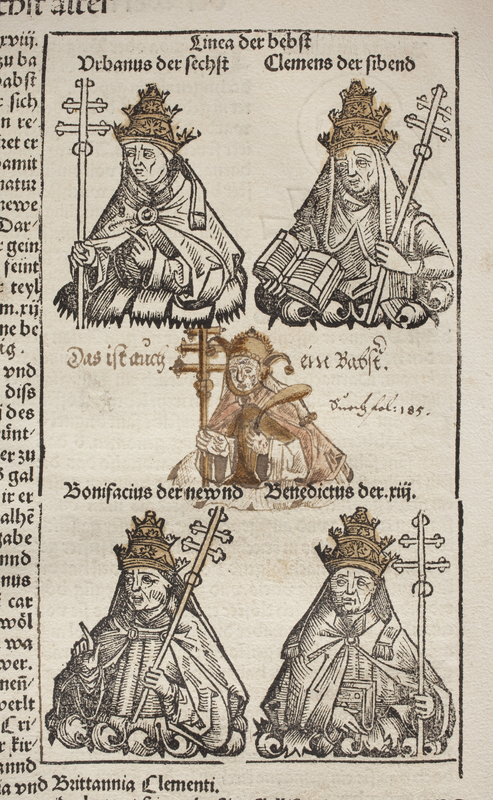 Linea der bebst
Urbanus der sechst Clemens der sibend
xviij.
zu ba
pabst
sich
n re-
ret er
amit
natur
newe
Dar-
gein
feint
teyl
m.xij
ne be
ig.
vnd
diss
des
er zu
gal
ir er
alhē
zabe
nnd
nus
car
wöl
wa
wer.
nen̄-
verlt
Cri-
kir-
annd
Das ist auch ein Babst.
Such fol: 185.
Bonifacius der newnd Benedictus der .xiij.
ia vnd Brittannia Clementi.